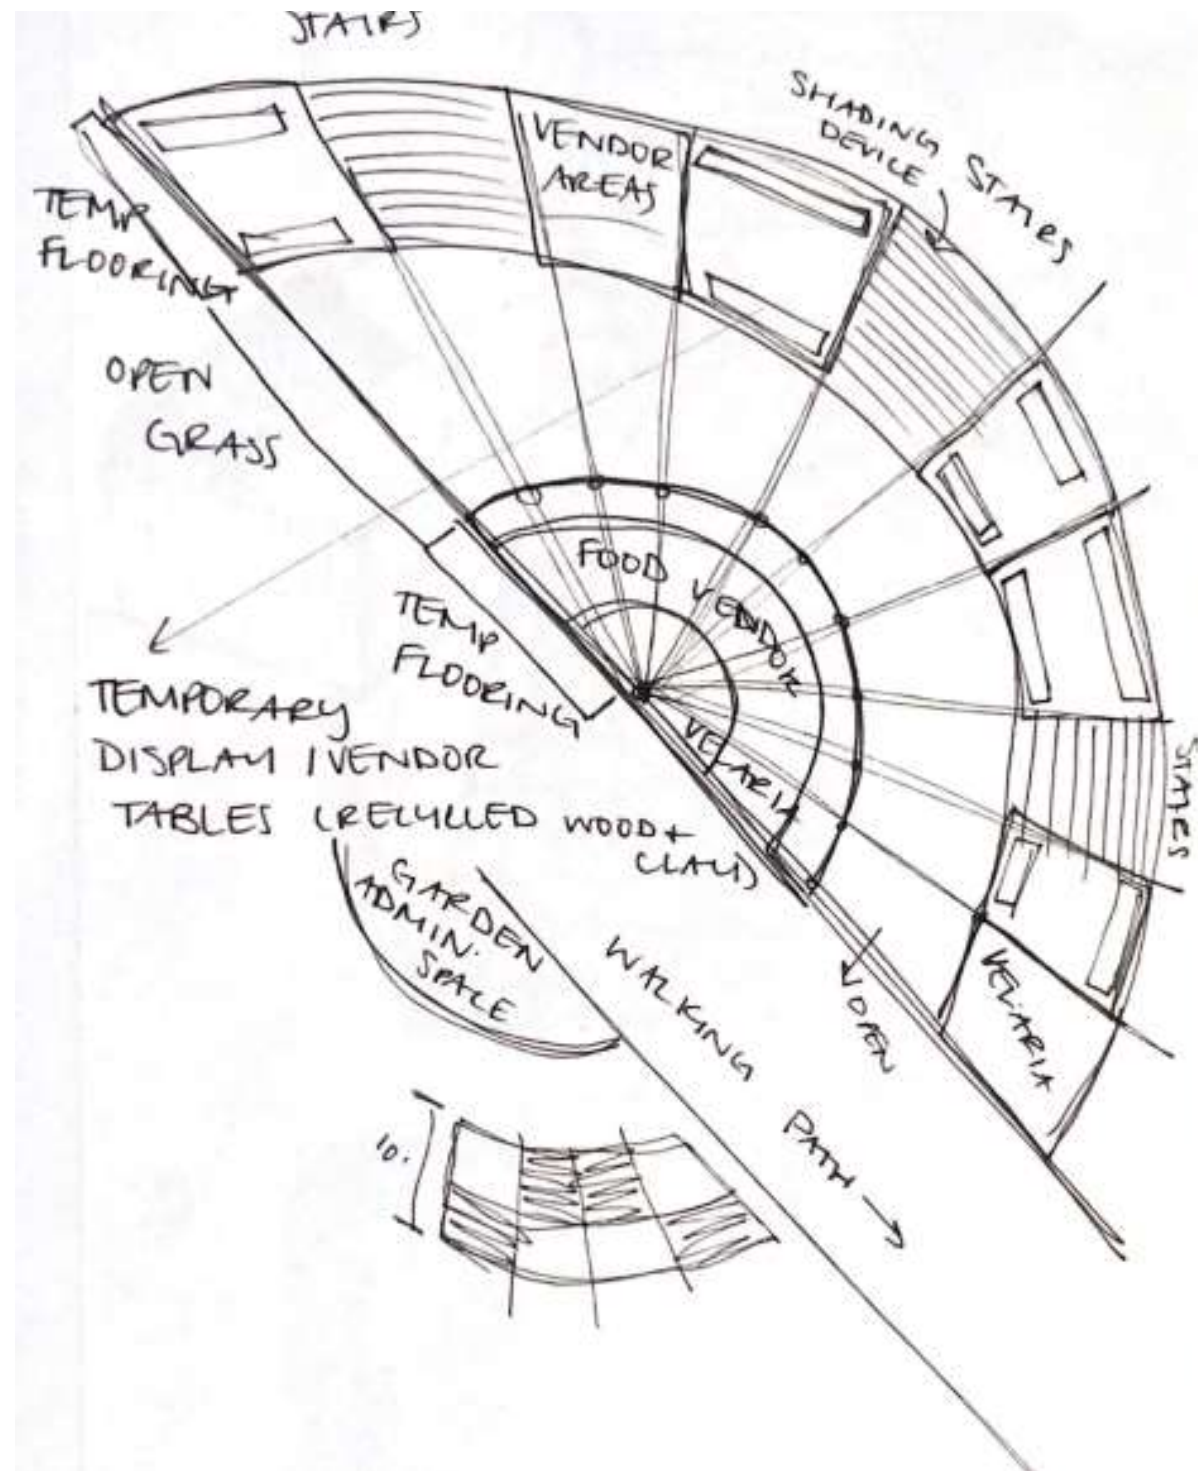 STAIRS
SHADING
DEVICE
STAIRS
VENDOR
AREAS
TEMP
FLOORING
OPEN
GRASS
FOOD VENDOR
TEMP
FLOORING
VELARIA
TEMPORARY
DISPLAY / VENDOR
TABLES (RECYLLED WOOD +
CLAUS)
STAIRS
GARDEN
ADMIN.
SPACE
WALKING
PATH
OPEN
VELARIA
10.